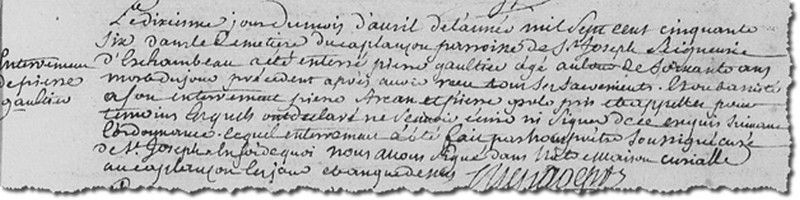 Le dixieme jour du mois d'avril de l'année mil sept cent cinquante
six dans le Cemetiere du cap lançon paroisse de St Joseph Seigneurie
Interrement
d'Eschambeau a été enterré pierre gaultier agé de soixante ans
de pierre
mort du jour precedent après avoir receu tous ses sacrements
gaultier
a son interrement pierre Arcan et pierre pris et appellez pour
temoins lesquels ont declaré ne Scavoir ecrire ni Signer de ce enquis Suivant
l'ordonnance lequel interrement a été fait par nous prêtre Soussigné curé
de St Joseph en foi de quoi nous avons Signé dans nôtre Maison curialle
au cap lançon les jour et an que dessus